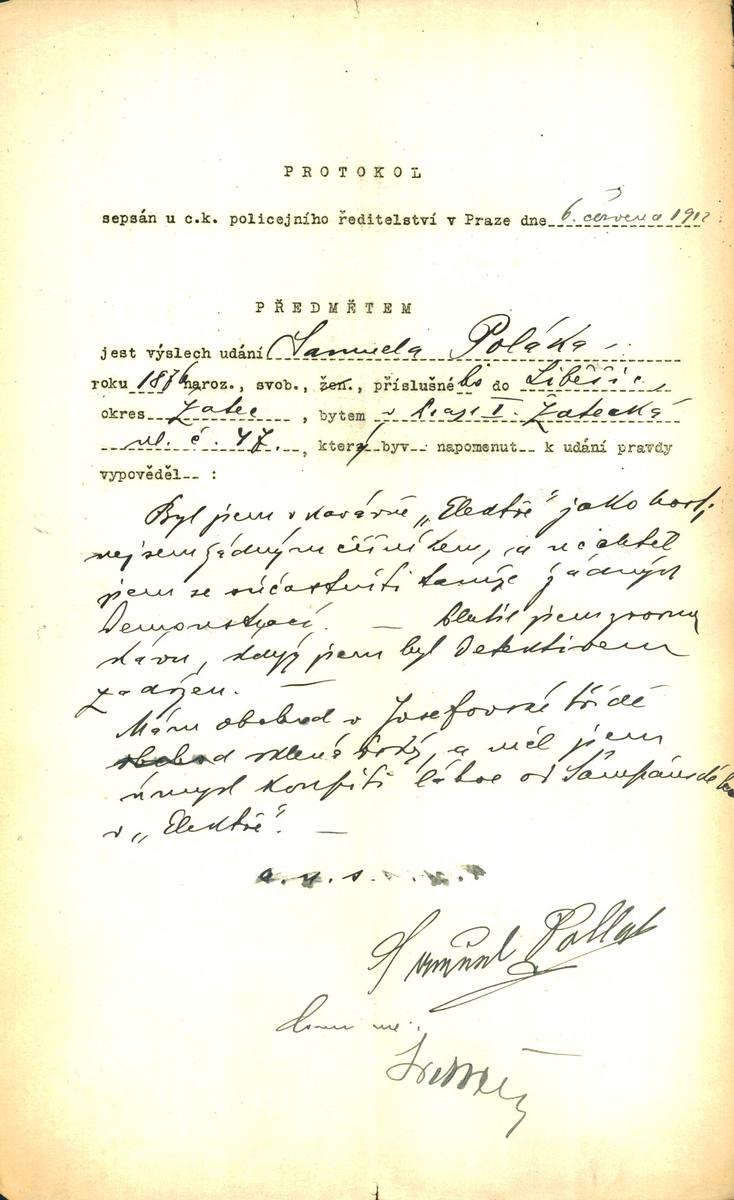 PROTOKOL
sepsán u c.k. policejního ředitelství v Praze dne 6. června 1912.
PŘEDMĚTEM
jest výslech udání Samuela Poláka
roku 1876 naroz., svob., žen., příslušného do Liběšic,
okres Žatec, bytem v Praze I. Žatecká
ul. č. 47., který byv napomenut k udání pravdy
vypověděl :
Byl jsem v kavárně „Elektře" jako host,
nejsem žádným číšníkem, a nechtěl
jsem se súčastniti tamže žádných
Demonstrací. — Platil jsem zrovna
kávu, když jsem byl Detektivem
zadržen. —
Mám obchod v Josefovské třídě
obchod skleněných, a měl jsem
úmysl koupiti láhve od Šampaňského
v „Elektře". —
Samuel Pollak